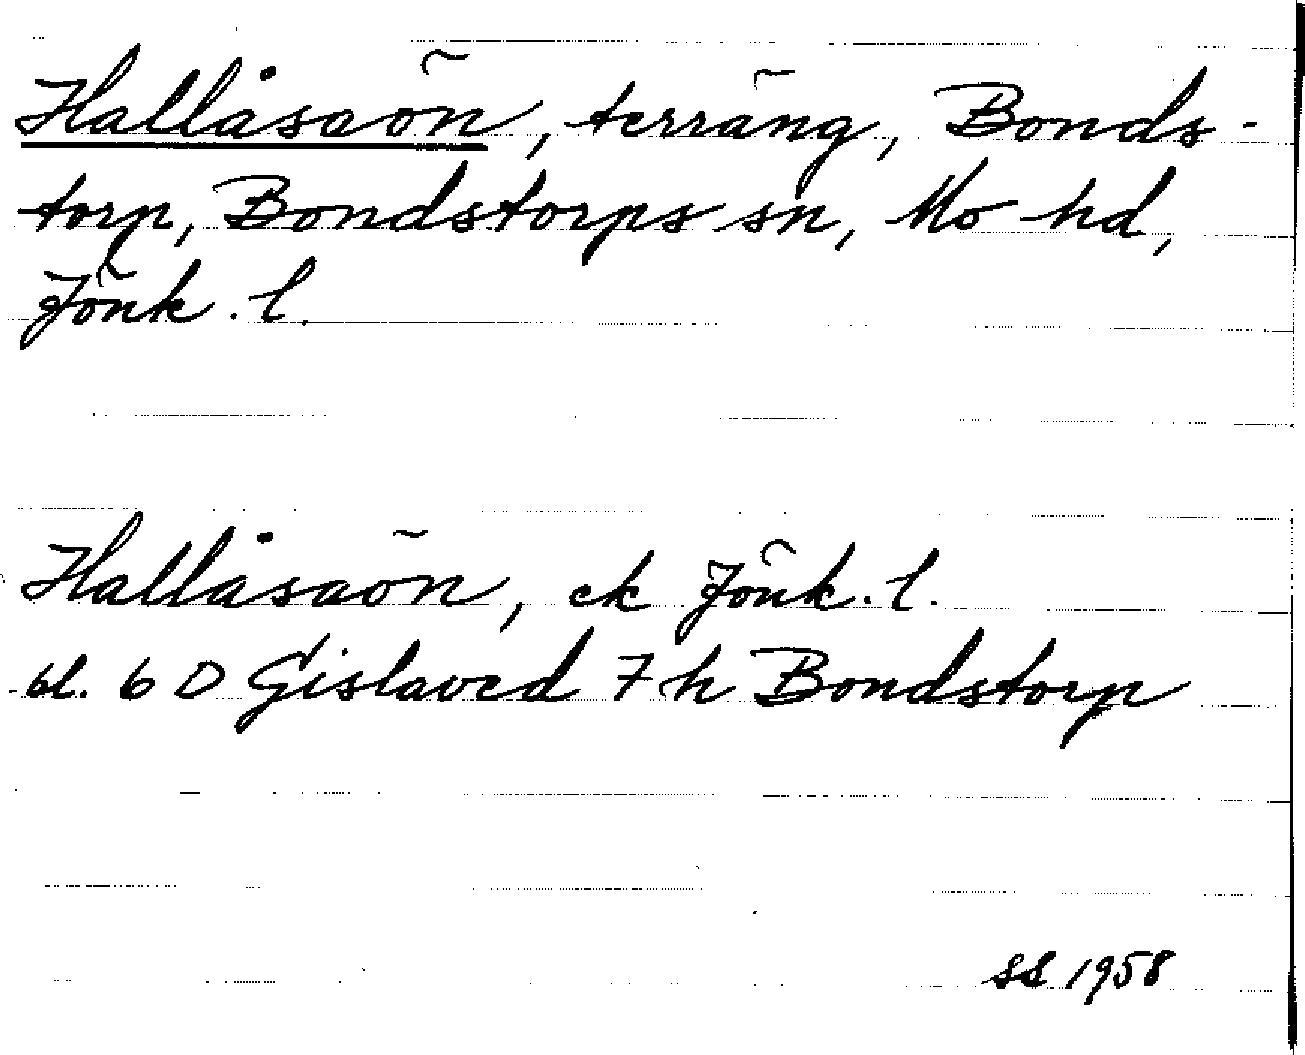 Hallåsaön, terräng, Bonds-
torp, Bondstorps sn, Mo hd,
Jönk. l.
Hallåsaön, ek Jönk. l.
bl. 6 D Gislaved 7 h Bondstorp
SS 1958